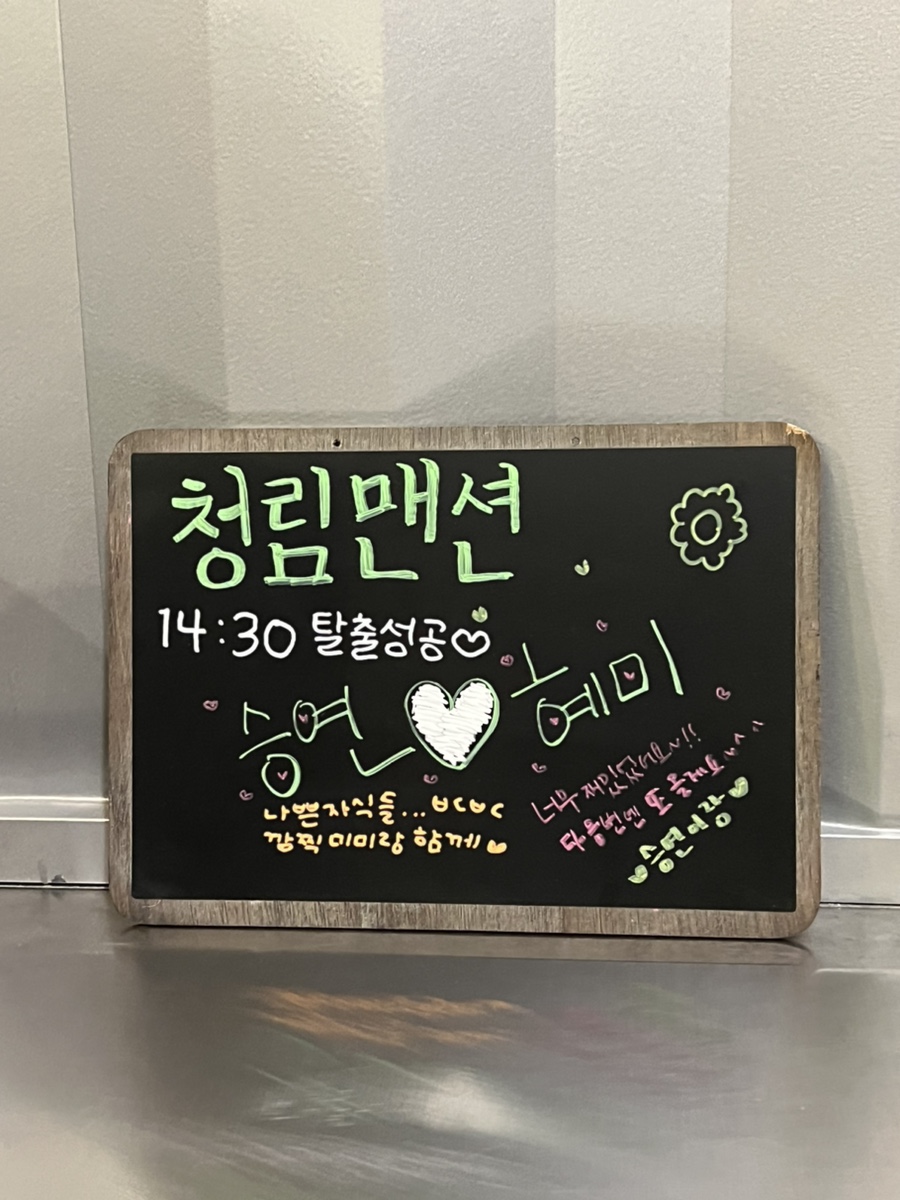 청림맨션
14:30 탈출성공♡
승연♥혜미
나쁜자식들...ㅂㄷㅂㄷ
깜찍미미랑 함께♥
너무 재밌었어요~!!
다음번엔 또 올래요^^
♥승연이랑♥